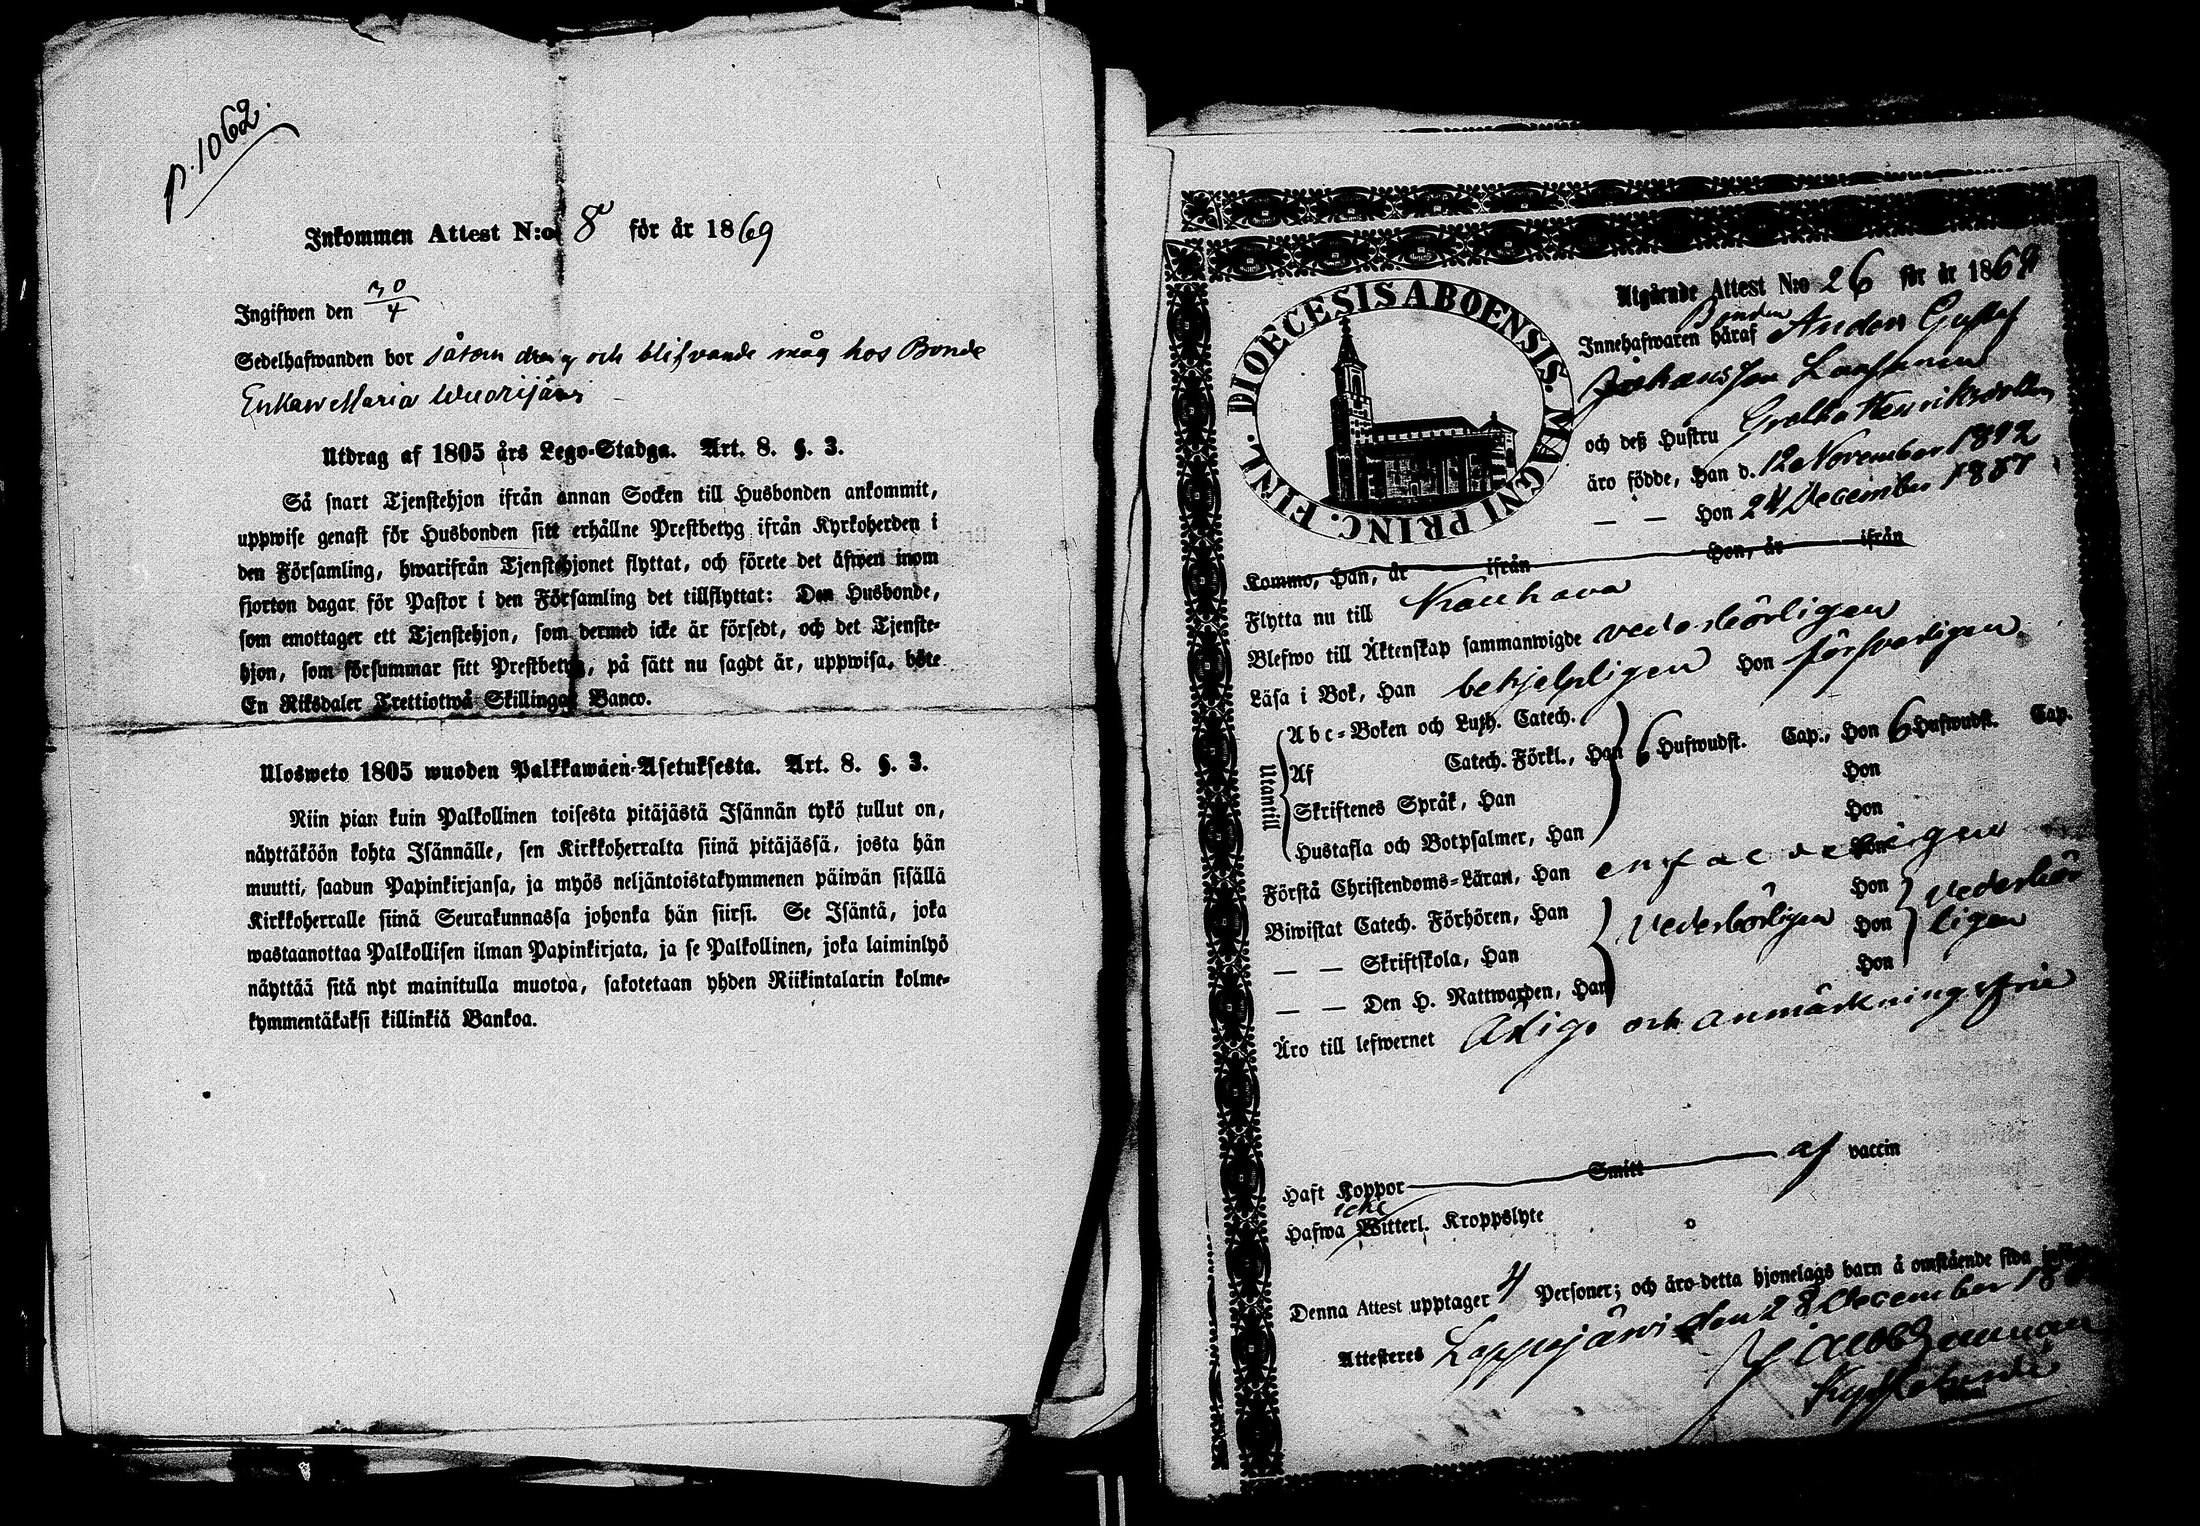 p. 1062.
Inkommen Attest N:o 8 för år 1869
Ingifwen den 30/4
Sedelhafwanden bor såsom dreng och blifvande måg hos Bonde
Enkan Maria Wuorijärvi
Utdrag af 1805 års Lego-Stadga. Art. 8. §. 3.
Så snart Tjenstehjon ifrån annan Socken till Husbonden ankommit,
uppwise genast för Husbonden sitt erhållne Prestbetyg ifrån Kyrkoherden i
den Församling, hwarifrån Tjenstehjonet flyttat, och förete det äfwen inom
fjorton dagar för Pastor i den Församling det tillflyttat: Den Husbonde,
som emottager ett Tjenstehjon, som dermed icke är försedt, och det Tjenste-
hjon, som försummar sitt Prestbetyg, på sätt nu sagdt är, uppwisa, böte
En Riksdaler Trettiotwå Skillingar Banco.
Ulosweto 1805 wuoden Palkkawäen-Asetuksesta. Art. 8. §. 3.
Niin pian kuin Palkollinen toisesta pitäjästä Isännän tykö tullut on,
näyttäköön kohta Isännälle, sen Kirkkoherralta siinä pitäjässä, josta hän
muutti, saadun Papinkirjansa, ja myös neljäntoistakymmenen päiwän sisällä
Kirkkoherralle siinä Seurakunnassa johonka hän siirsi. Se Isäntä, joka
wastaanottaa Palkollisen ilman Papinkirjata, ja se Palkollinen, joka laiminlyö
näyttää sitä nyt mainitulla muotoa, sakotetaan yhden Riikintalarin kolme-
kymmentäkaksi killinkiä Bankoa.
DIOECESIS ABOENSIS. MAGNI PRINC. FINL.
Utgående Attest N:o 26 för år 1868
Bonden
Innehafwaren häraf Anders Gustaf
Johansson
och deß Hustru Greta Henriksdotter
äro födde, Han d. 12 November 1842
— — Hon 24 December 1837
Kommo, Han, år ifrån Hon, år ifrån
Flytta nu till Kauhava
Blefwo till Äktenskap sammanwigde vederbörligen
Läsa i Bok, Han behjelpligen Hon försvarligen
Utantill
Abc-Boken och Luth. Catech.
Af Catech. Förkl., Han 6 Hufwudst. Cap., Hon 6 Hufwudst. Cap.
Hon
Skriftenes Språk, Han Hon
Hustafla och Botpsalmer, Han Hon
Förstå Christendoms-Läran, Han enfaldeligen Hon
Biwistat Catech. Förhören, Han vederbörligen Hon vederbör
— — Skriftskola, Han Hon ligen
— — Den H. Nattwarden, Han Hon
Äro till lefwernet ärlige och anmärkningsfrie
Haft Koppor Smitt af vaccin
icke
Hafwa Witterl. Kroppslyte
Denna Attest upptager 4 Personer; och äro detta hjonelags barn å omstående sida
Attesteres Lappajärvi den 28 December